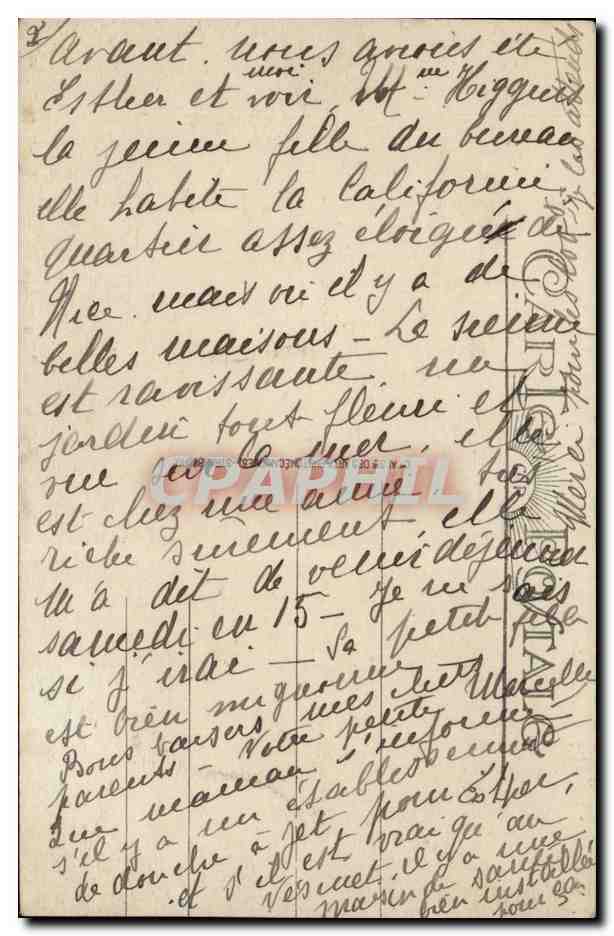 2/
avant. nous avons été
Esther et moi voir Mme Higgins
la jeune fille du bureau
elle habite la Californie
quartier assez éloigné de
Nice. mais où il y a de
belles maisons - La sienne
est ravissante, un
jardin tout fleuri et
vue sur la mer, elle
est chez une amie. très
riche sûrement, elle
m'a dit de venir déjeuner
samedi en 15 - Je ne sais
si j'irai - Sa petite fille
est bien mignonne
Bons baisers mes chers
parents - Votre petite Marcelle
Que maman s'informe
s'il y a un établissement
de douche à jet pour Esther,
et s'il est vrai qu'au
Vésinet, il y a une
maison de santé
bien installée
pour ça.
Merci pour les
je les attends
CARTE POSTALE
CPAPHIL